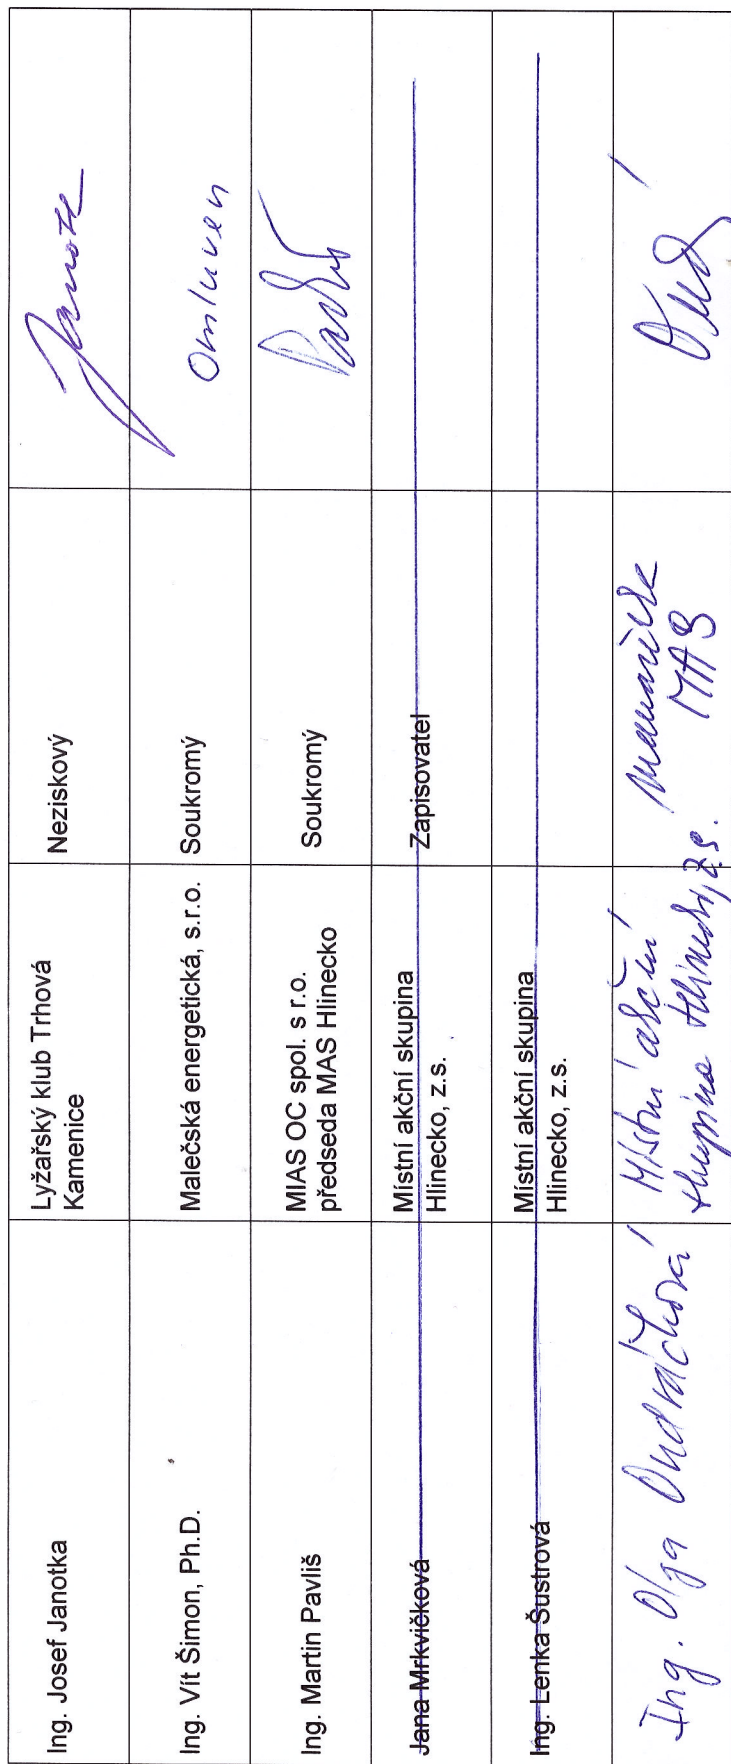 Ing. Josef Janotka
Lyžařský klub Trhová
Kamenice
Neziskový
Ing. Vít Šimon, Ph.D.
Malečská energetická, s.r.o.
Soukromý
Omluven
Ing. Martin Pavliš
MIAS OC spol. s r.o.
předseda MAS Hlinecko
Soukromý
Jana Mrkvičková
Místní akční skupina
Hlinecko, z.s.
Zapisovatel
Ing. Lenka Šustrová
Místní akční skupina
Hlinecko, z.s.
Ing. Olja Ondráčková
Místní akční
skupina Hlinecko, z.s.
MAS